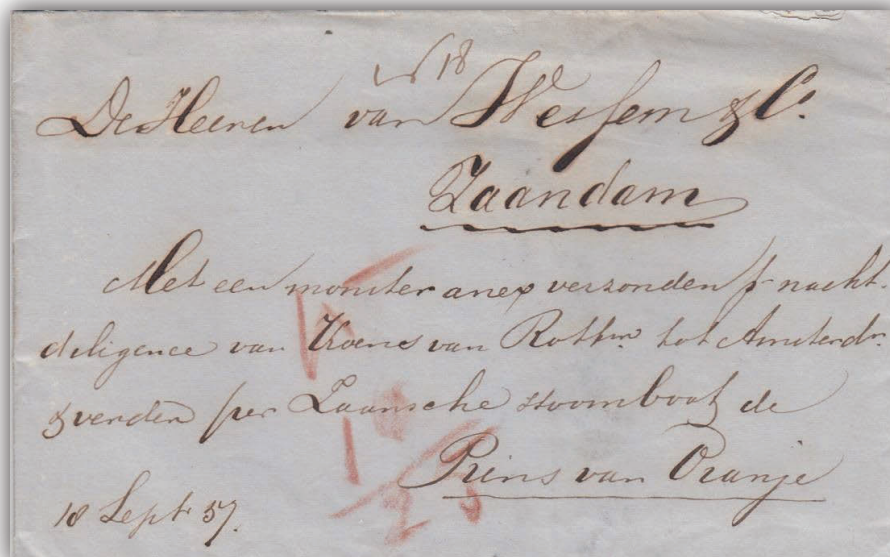 18
De Heeren van Wessem & Co.
Zaandam
Met een monster anex verzonden pr nacht-
diligence van Koens van Rottm. tot Amsterdm.
& verder per Zaansche stoomboot de
Prins van Oranje
18 Sept 57.